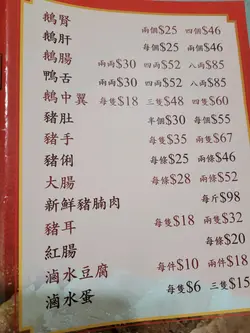 鵝腎 兩個$25 四個$46
鵝肝 每個$25 兩個$46
鵝腸 兩両$30 四両$52 八両$85
鴨舌 兩両$30 四両$52 八両$85
鵝中翼 每隻$18 三隻$48 四隻$60
豬肚 半個$30 每個$55
豬手 每隻$35 兩隻$67
豬脷 每條$25 兩條$46
大腸 每條$28 兩條$52
新鮮豬腩肉 每斤$98
豬耳 每隻$18 兩隻$32
紅腸 每條$20
滷水豆腐 每件$10 兩件$18
滷水蛋 每隻$6 三隻$15